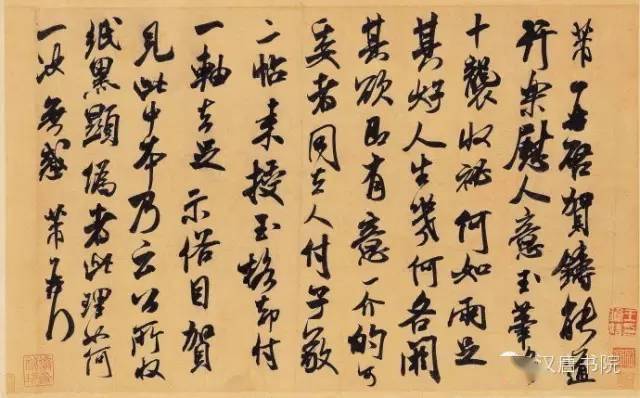 芾再啓賀鑄能道
行樂慰人意玉筆
十襲收祕何如兩足
其好人生幾何各闕
其欲即有意一介的可
委者同去人付子敬
二帖來授玉格却付
一軸去足示俗目賀
見此中本乃云公所收
紙黑顯偽者此理如何
一決無惑芾再行
汉唐书院